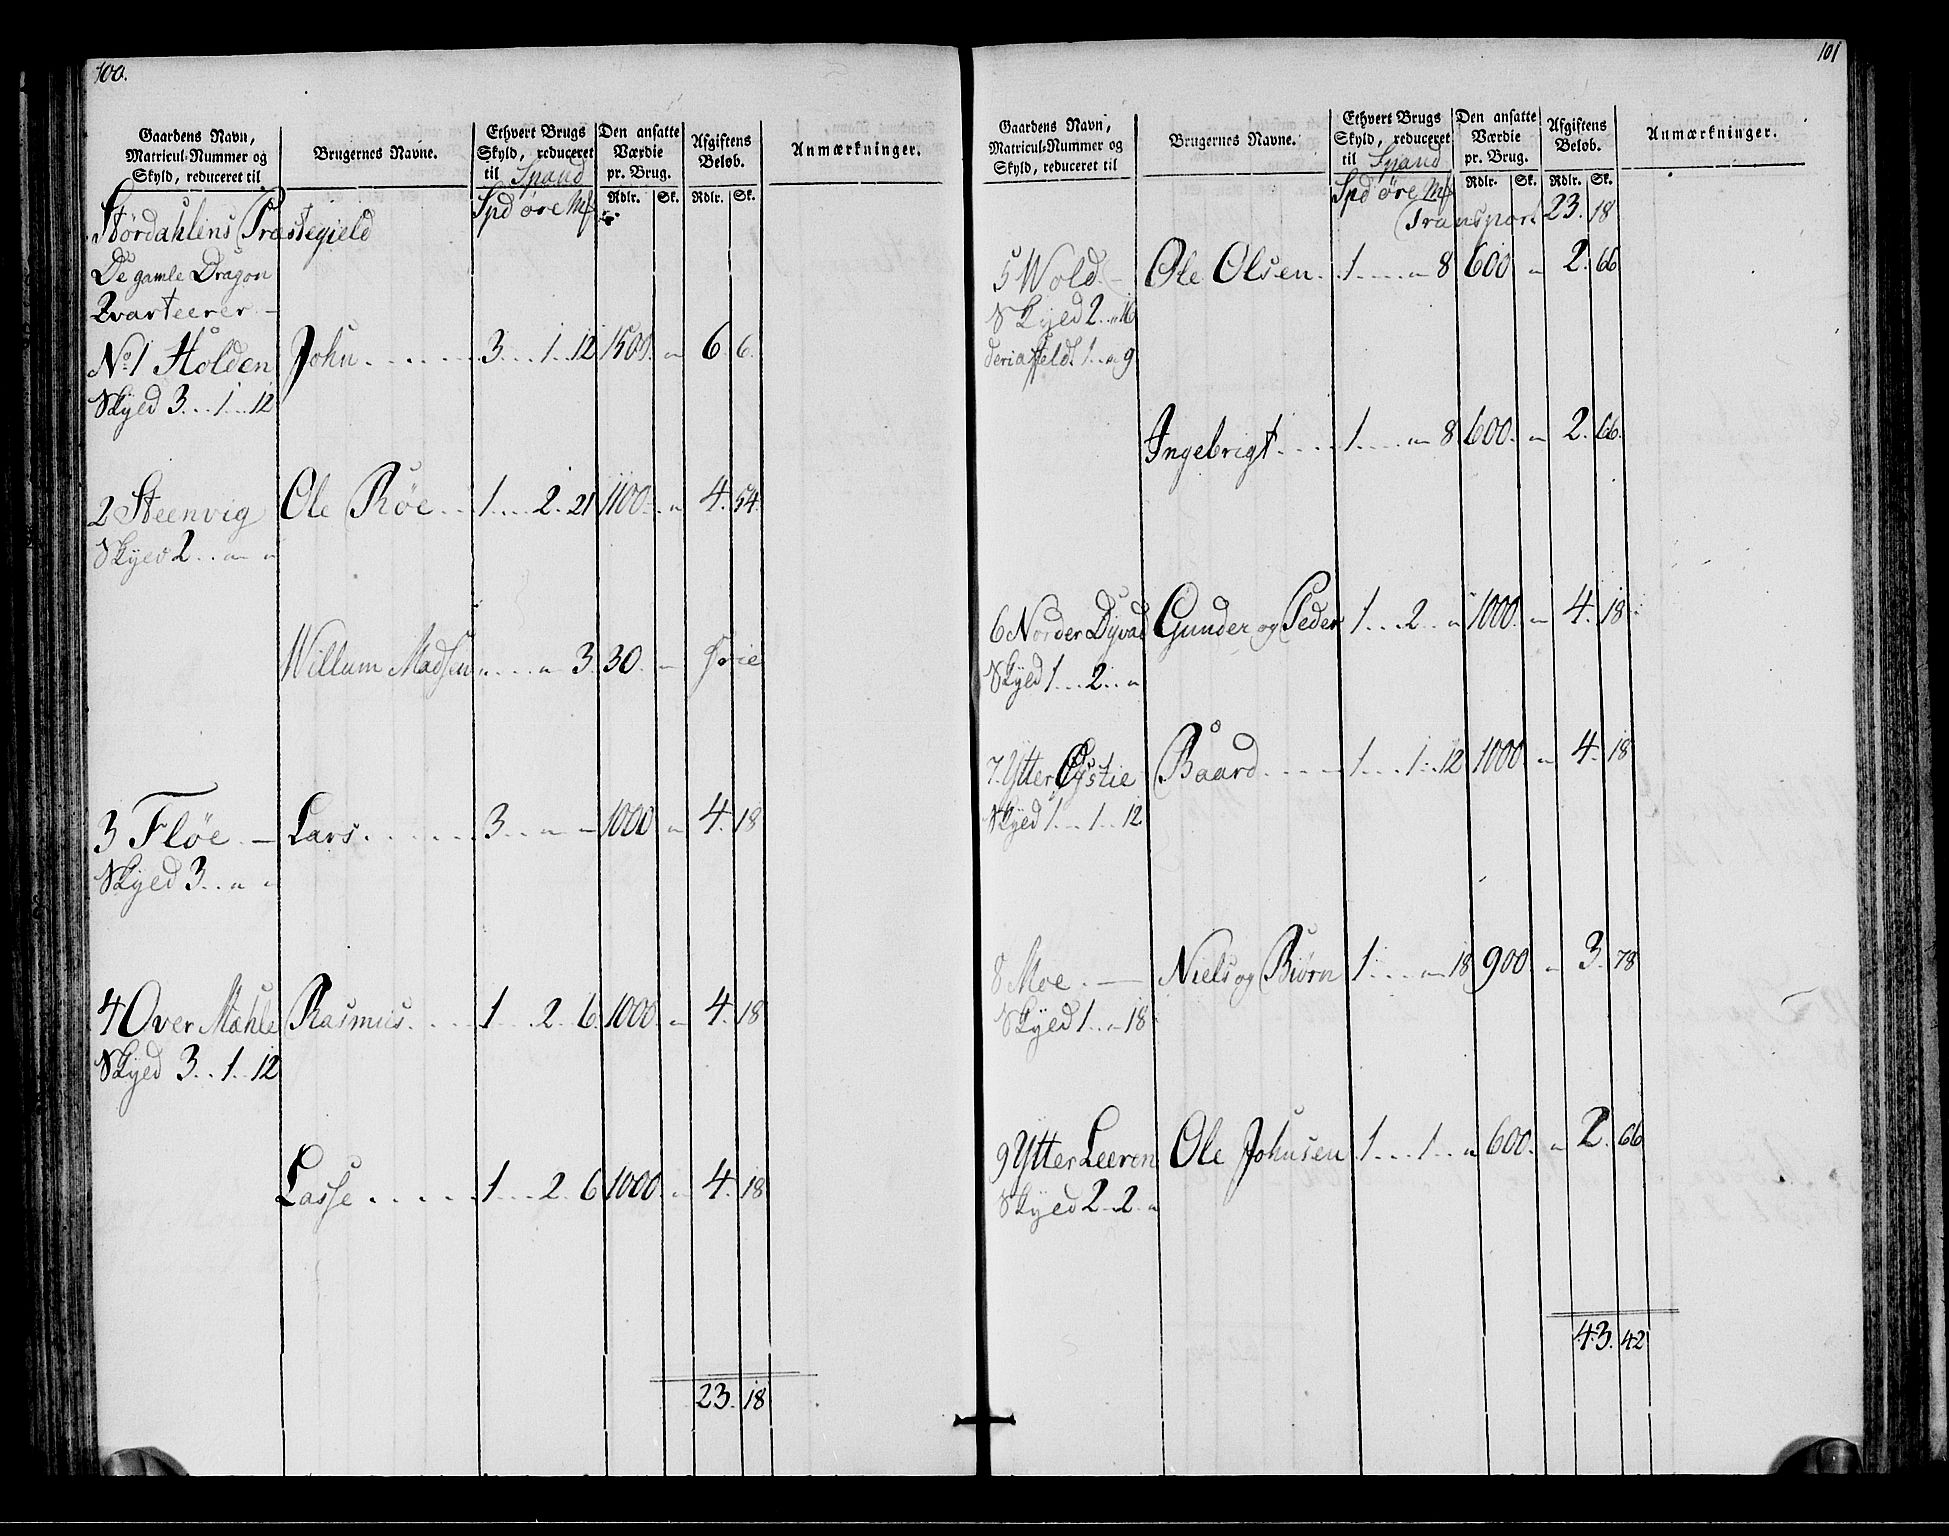 100.
Gaardens Navn, Matricul-Nummer og Skyld, reduceret til
Brugernes Navne.
Ethvert Brugs Skyld, reduceret til Spand
Den ansatte Værdie pr. Brug.
Afgiftens Beløb.
Anmærkninger.
Spd øre Mk
Rdlr. Sk. Rdlr. Sk.
Størdahlens Præstegield
De gamle Dragon
Qvarteerer -
No 1 Holden John . . . . . . 3 . . 1 . 12 1500 . " 6 . 6 .
Skyld 3 . . 1 . . 12
2 Steenvig Ole Røe . . 1 . . . 2 . 21 1100 . " 4 . 54 .
Skyld 2 . . " "
Willum Madsen " . . . " 3 . 30 . " frie
3 Fløe - Lars . . . . . . 3 . . " " 1000 " 4 . 18
Skyld 3 . . " "
4 Over Mæhle Rasmus . . . . 1 . . 2 . 6 . 1000 . " 4 . 18
Skyld 3 . . 1 . . 12
Lasse . . . . . 1 . . 2 . 6 1000 . " 4 . 18
23 . 18
101
Gaardens Navn, Matricul-Nummer og Skyld, reduceret til
Brugernes Navne.
Ethvert Brugs Skyld, reduceret til Spand
Den ansatte Værdie pr. Brug.
Afgiftens Beløb.
Anmærkninger.
Spd øre Mk
Rdlr. Sk. Rdlr. Sk.
Transport 23 . 18
5 Wold - Ole Olsen . 1 . . . " 8 600 " 2 . 66
Skyld 2 . . " 16
1 . . " 9
Ingebrigt . . . . 1 . . . " 8 600 . " 2 . 66 .
6 Norder Dyvad Gunder og Peder 1 . . . 2 . . " 1000 . " 4 . 18
Skyld 1 . . . 2 . . "
7 . Ytter Øystie Baard . . . . 1 . . . 1 . . 12 1000 " 4 . 18
Skyld 1 . . . 1 . . 12
8 Moe . - Niels og Biørn 1 . . . " 18 900 . " 3 . 78
Skyld 1 . . " 18
9 Ytter Leeren Ole Johnsen 1 . . . 1 . . " 600 . " 2 . 66
Skyld 2 . . 2 . "
43 . 42